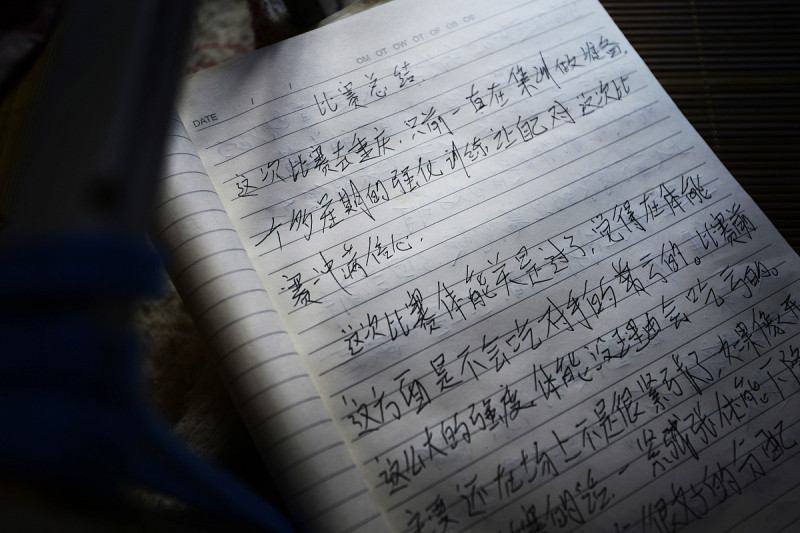 MO TU WE TH FR SA SU
DATE
比赛总结
这次比赛去重庆，只前一直在集训做准备，
个多星期的强化训练让自己对这次比
赛冲满信心．
这次比赛体能算是过了，觉得在体能
这方面是不会吃对手的
这么大的强度，体能没理由会吃亏的。比赛前
主要还在场上不是很紧张了，如果像平
的话，一紧张体能下降
很好的分配